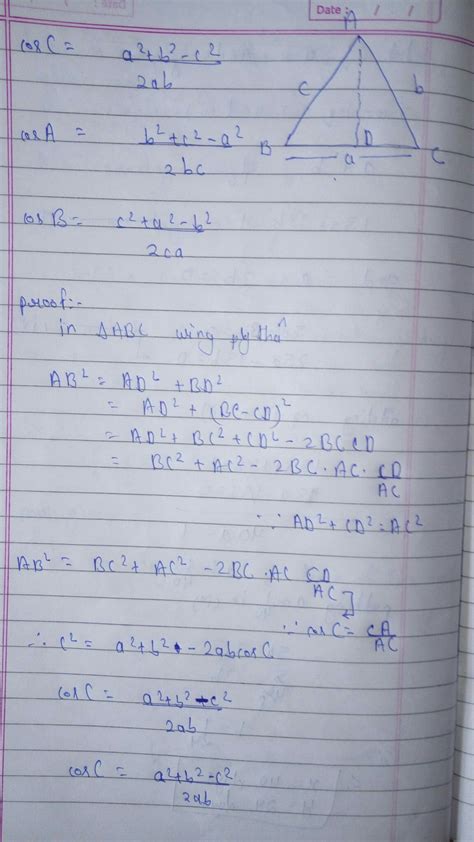 Date : / /
cosC = a²+b²-c² / 2ab
A
c b
B D C
a
cosA = b²+c²-a² / 2bc
cosB = c²+a²-b² / 2ca
proof:-
in △ABC using pytha^
AB² = AD² + BD²
= AD² + (BC-CD)²
= AD² + BC² + CD² - 2BC CD
= BC² + AC² - 2BC · AC · CD/AC
∵ AD² + CD² = AC²
AB² = BC² + AC² - 2BC · AC CD/AC
∵ cosC = CA/AC
∴ c² = a² + b² - 2abcosC
cosC = a²+b²-c² / 2ab
cosC = a²+b²-c² / 2ab